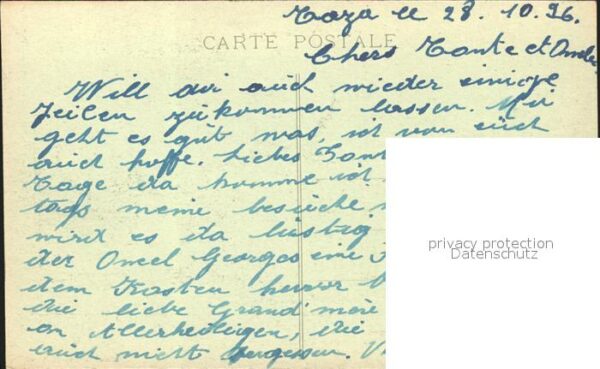 Taza le 28. 10. 26.
CARTE POSTALE
Chers Tante et Oncle
Will dir auch wieder einige
Zeilen zukommen lassen. Mir
geht es gut was, ich von euch
auch hoffe. Liebes
Tage da komme ich
tags meine besuche
wird es da lustig
der Oncel Georges eine
dem Kasten hervor
die liebe Grand'mère
an Allerheiligen, die
auch nicht vergessen.
privacy protection
Datenschutz